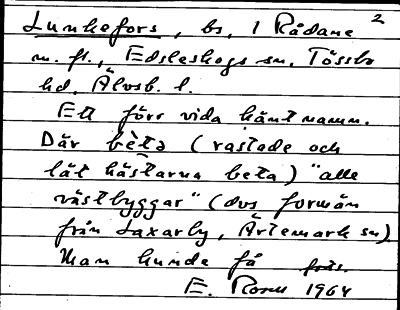 Lunkefors, bs, 1 Rådane 2
m. fl., Edsleskogs sn, Tössbo
hd, Älvsb. l.
Ett förr vida känt namn.
Där bètə (rastade och
lät hästarna beta) "alle
västbyggar" (dvs formän
från Laxarby, Ärtemark sn).
Man kunde få
E. 1964